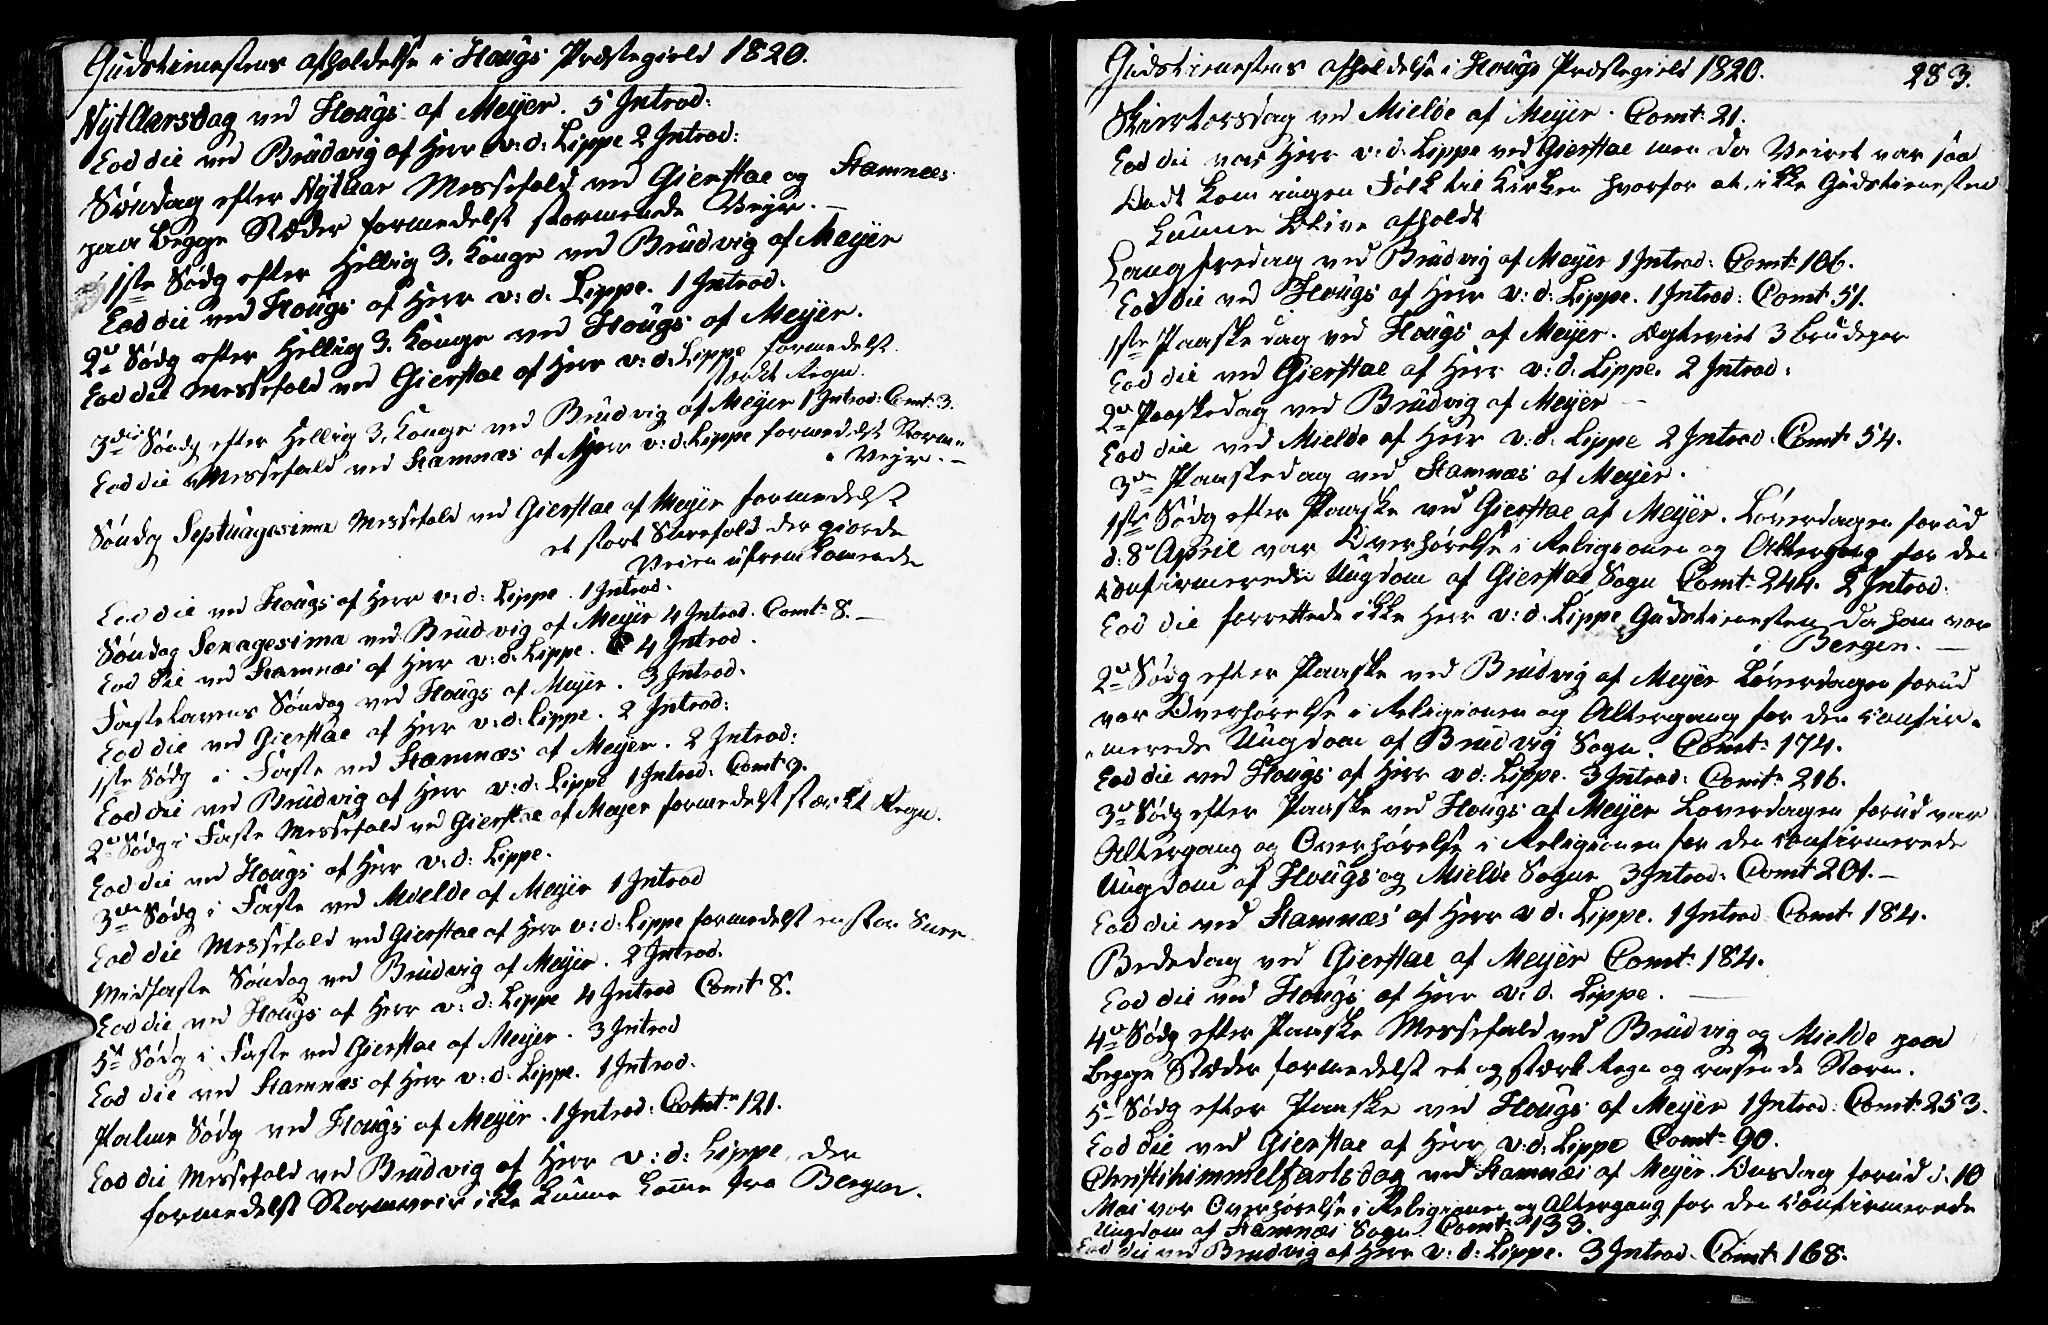 Gudstienestens afholdelse i Hougs Præstegield 1820.
Nyt Aarsdag ved Hougs af Meyer. 5 Introd:
Eod die ved Brudvig af Herr v: d: Lippe 2 Introd:
Søndag efter Nyt Aar Messefald ved Gierstae og Stamnees
paa begge Stæder formedelst stormende Veyr. —
1ste Sødg efter Hellig 3. Konge ved Brudvig af Meyer
Eod die ved Hougs af Herr v: d. Lippe. 1 Introd.
2den Sødg efter Hellig 3. Konge ved Hougs af Meyer.
Eod die Messefald ved Gierstae af Herr v: d: Lippe formedelst
stærkt Regn.
3die Søndg efter Hellig 3. Konge ved Brudvig af Meyer 1 Introd: Comt: 3.
Eod die Messefald ved Stamnæs af Herr v: d: Lippe formedelst Storm-
Vejr. —
Søndg Septuagesima Messefald ved Gierstae af Meyer formedelst
et stort Sneefold der giorde
Veien ufremkomende
Eod die ved Hougs af Herr v: d: Lippe. 1 Introd.
Søndag Sexagesima ved Brudvig af Meyer 4 Introd. Comt: 8. —
Eod die ved Stamnæs af Herr v: d: Lippe. 4 Introd.
Fastelavens Søndag ved Hougs af Meyer. 3 Introd.
Eod die ved Gierstae af Herr v: d: Lippe. 2 Introd:
1ste Sødg i Faste ved Stamnæs af Meyer. 2 Introd:
Eod die ved Brudvig af Herr v: d: Lippe 1 Introd: Comt 9.
2den Sødg i Faste Messefald ved Gierstae af Meyer formedelst stærkt Regn.
Eod die ved Hougs af Herr v: d: Lippe.
3die Sødg i Faste ved Mielde af Meyer 1 Introd
Eod die Messefald ved Gierstae af Herr v: d: Lippe formedelst en stor Snee
Midfaste Søndag ved Brudvig af Meyer. 2 Introd.
Eod die ved Hougs af Herr v: d: Lippe 4 Introd Comt 8.
5te Sødg i Faste ved Gierstae af Meyer. 3 Introd
Eod die ved Stamnæs af Herr v: d: Lippe. 1 Introd.
Palme Sødg ved Hougs af Meyer. 1 Introd: Comt: 121.
Eod die Messefald ved Brudvig af Herr v: d: Lippe, der
formedelst Stormveir ikke kunne kome fra Bergen.
Gudstienestens afholdelse i Hougs Præstegield 1820. 283.
Skiertorsdag ved Mielde af Meyer. Comt: 21.
Eod die var Herr v: d: Lippe ved Gierstae men da Veiret var saa
ondt kom ingen Folk til Kirken hvorfor at ikke Gudstienesten
kunne blive afholdt
Langfredag ved Brudvig af Meyer 1 Introd: Comt: 106.
Eod die ved Hougs af Herr v: d: Lippe. 1 Introd: Comt 51.
1ste Paaskedag ved Hougs af Meyer. Ægteviet 3 brudepar
Eod die ved Gierstae af Herr v: d. Lippe. 2 Introd:
2den Paaskedag ved Brudvig af Meyer —
Eod die ved Mielde af Herr v: d: Lippe 2 Introd. Comt: 54.
3die Paaskedag ved Stamnæs af Meyer.
1ste Sødg efter Paaske ved Gierstae af Meyer. Løverdagen forud
d: 8de April var Overhørelse i Religionen og Altergang for den
Confirmerede Ungdom af Gierstae Sogn Comt: 244. 2 Introd:
Eod die forrettede ikke Herr v: d. Lippe Gudstienesten da han var
i Bergen. —
2den Sødg efter Paaske ved Brudvig af Meyer Løverdagen forud
var Overhørelse i Religionen og Altergang for den Confir-
merede Ungdom af Brudvig Sogn. Comt: 174.
Eod die ved Hougs af Herr v d: Lippe. 3 Introd: Comt: 216.
3die Sødg efter Paaske ved Hougs af Meyer Loverdagen forud var
Altergang og Overhørelse i Religionen for den Confirmerede
Ungdom af Hougs og Mielde Sogne 3 Introd: Comt 201. —
Eod die ved Stamnæs af Herr v d: Lippe. 1 Introd Comt: 184.
Bededag ved Gierstae af Meyer Comt: 184.
Eod die ved Hougs af Herr v: d. Lippe. —
4de Sødg efter Paaske Messefald ved Brudvig og Mielde paa
begge Stæder formedelst et og stærk Regn og rasende Storm.
5te Sødg efter Paaske ved Hougs af Meyer 1 Introd: Comt: 253.
Eod die ved Gierstae af Herr v: d: Lippe Comt: 90.
Christihimmelfartsdag ved Stamnæs af Meyer. Onsdag forud d. 10
Mai var Overhørelse i Religionen og Altergang for den Confirmerede
Ungdom af Stamnæs Sogn. Comt: 133.
Eod die ved Brudvig af Herr v: d: Lippe. 3 Introd. Comt: 168.